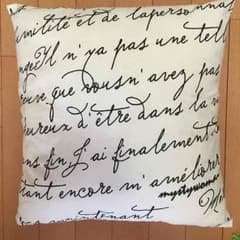 imitité et de la person
ge Il n'ya pas une tell
euve que vous n'avez pas
eureux d'être dans la v
ns fin, J'ai finalement
tant encore m'améliorer
mystywoman
Me
maintenant